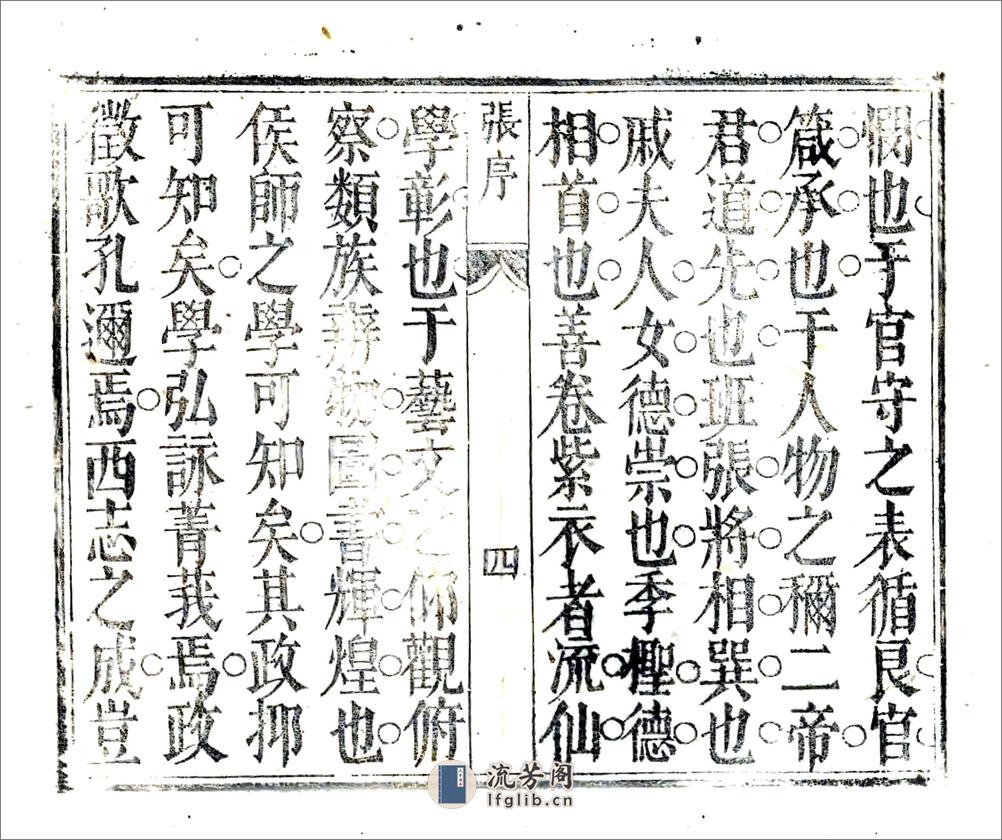 憫也于官守之表循良官
箴承也于人物之禰二帝
君道先也班張將相巽也
戚夫人女德崇也季檉德
相首也善卷紫衣者流仙
張序
四
學彰也于藝文之仰觀俯
察類族辨物圖書輝煌也
侯師之學可知矣其政抑
可知矣學弘詠菁莪焉政
徵歌孔邇焉西志之成豈
流芳阁
lfglib.cn